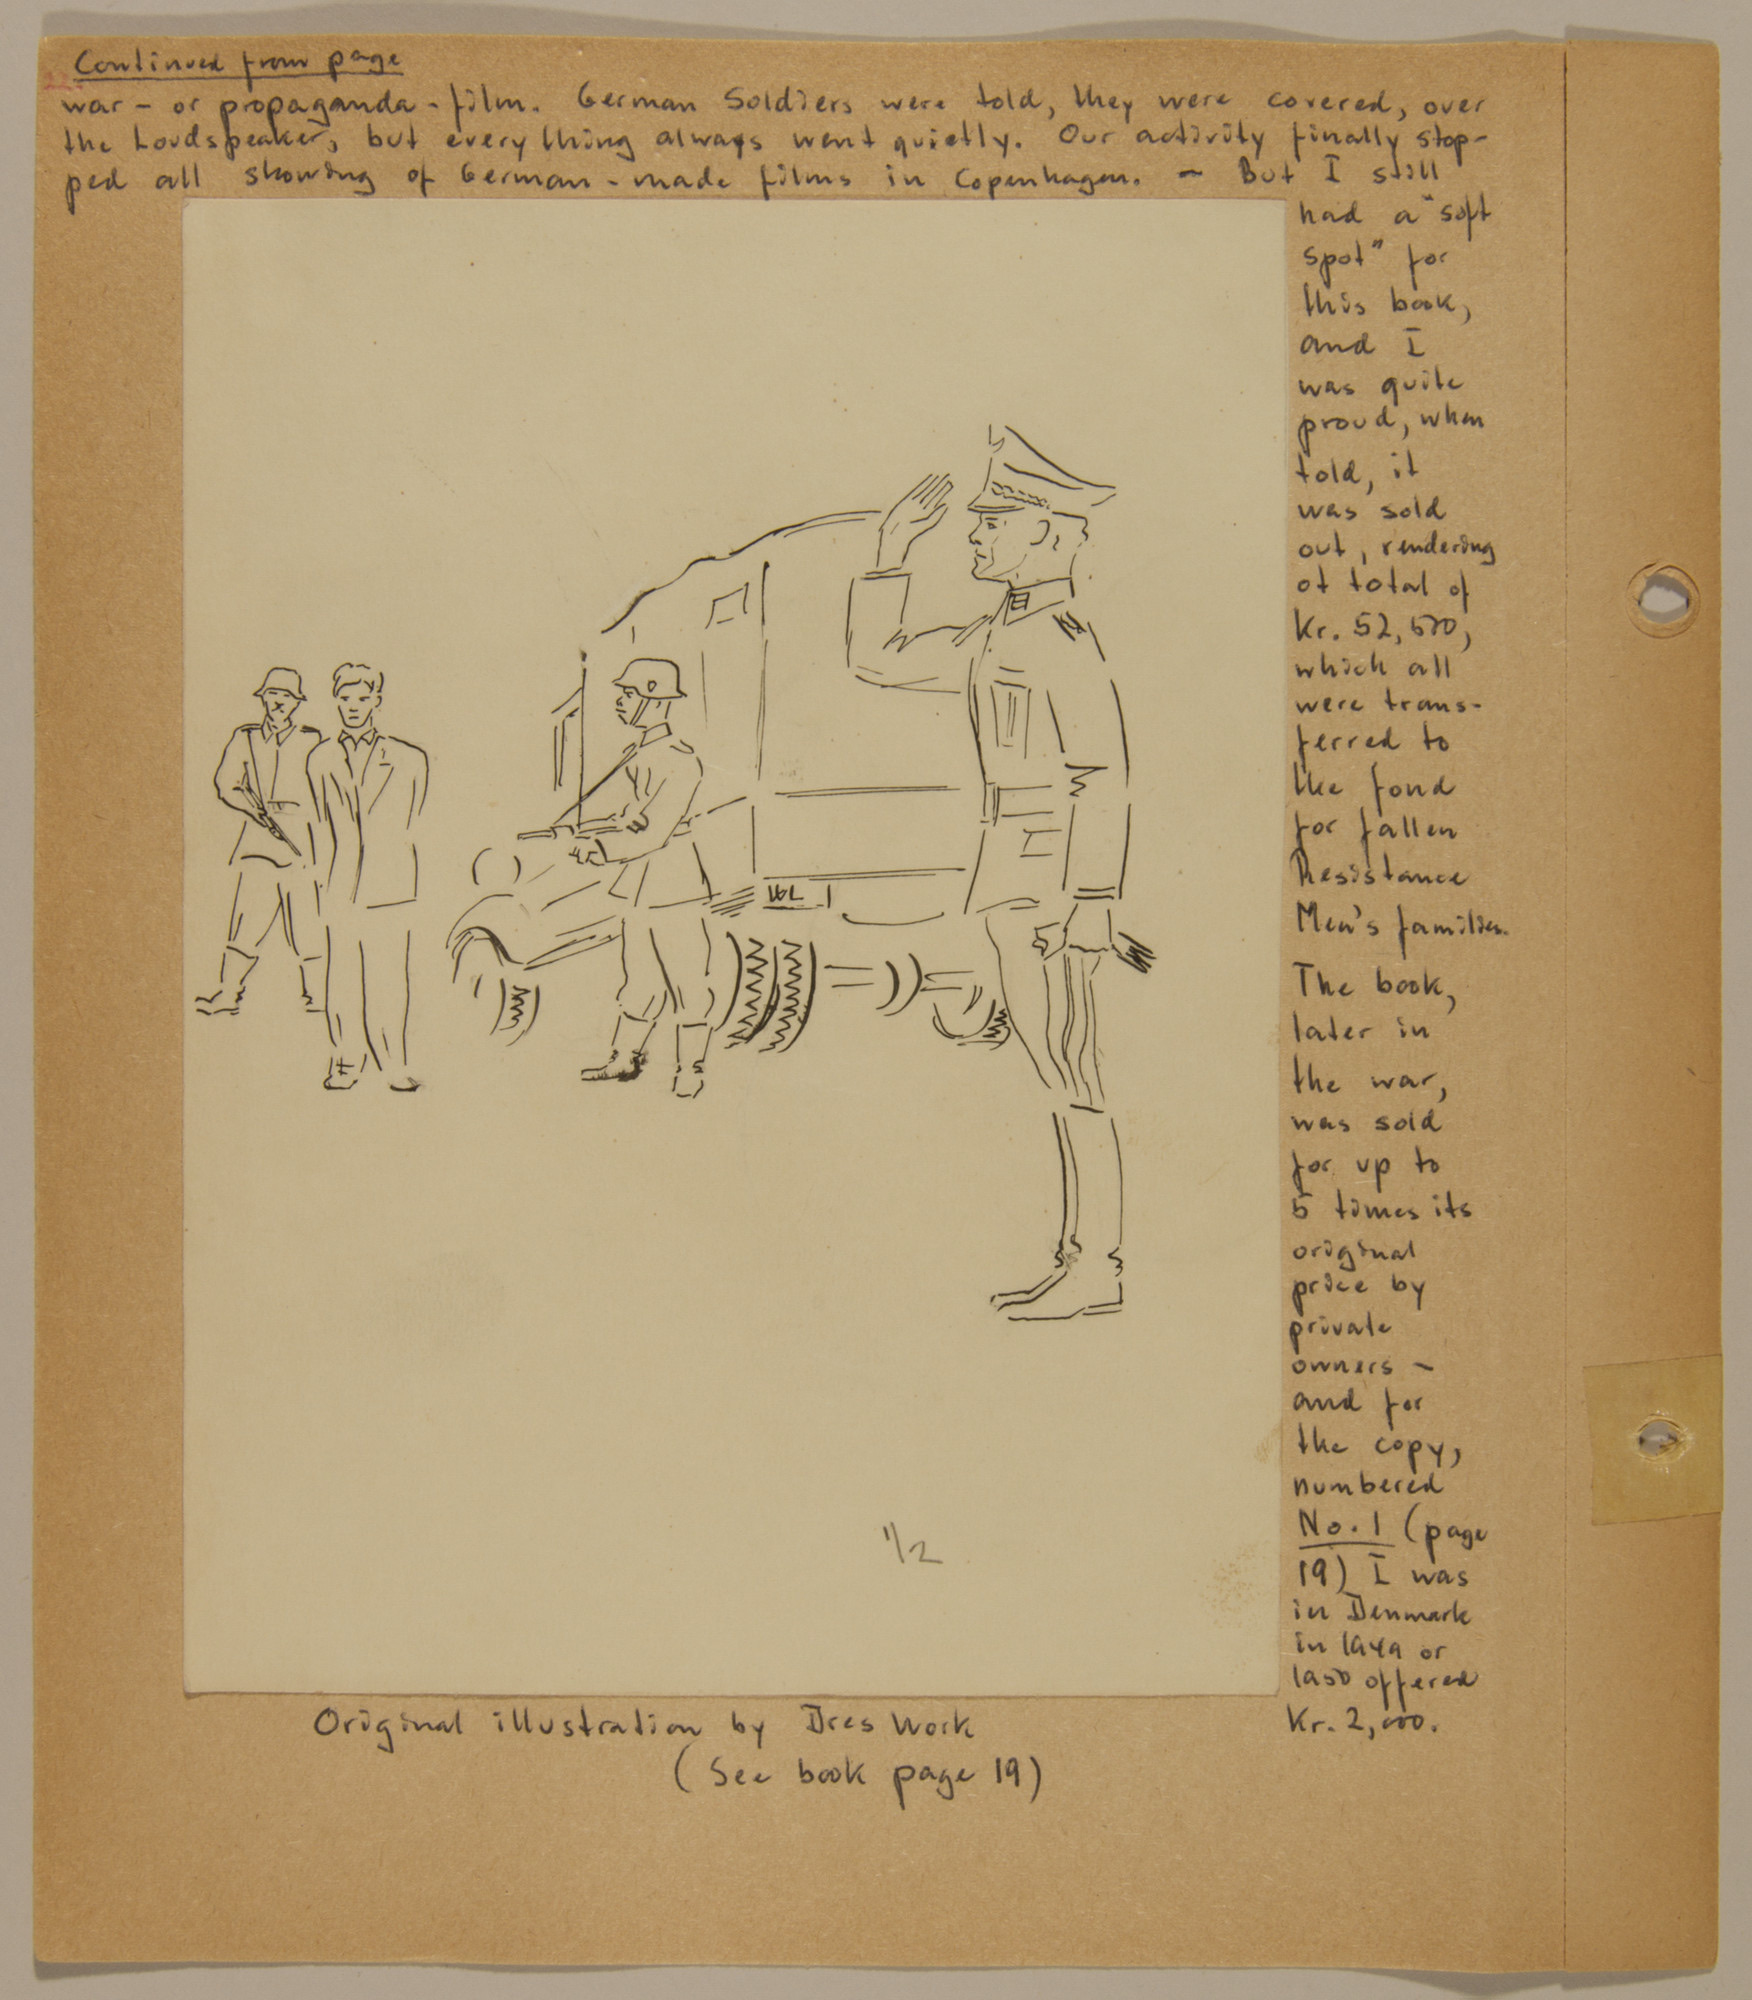 Continued from page
22.
war - or propaganda - film. German Soldiers were told, they were covered, over
the Loudspeaker, but everything always went quietly. Our activity finally stop-
ped all showing of German - made films in Copenhagen. - But I still
had a "soft
spot" for
this book,
and I
was quite
proud, when
told, it
was sold
out, rendering
at total of
Kr. 52,500,
which all
were trans-
ferred to
the fond
for fallen
Resistance
Men's families.
The book,
later in
the war,
was sold
for up to
5 times its
original
price by
private
owners -
and for
the copy,
numbered
No. 1 (page
19) I was
in Denmark
in 1949 or
1950 offered
Kr. 2,000.
WL 1
1/2
Original illustration by Dres Work
(See book page 19)